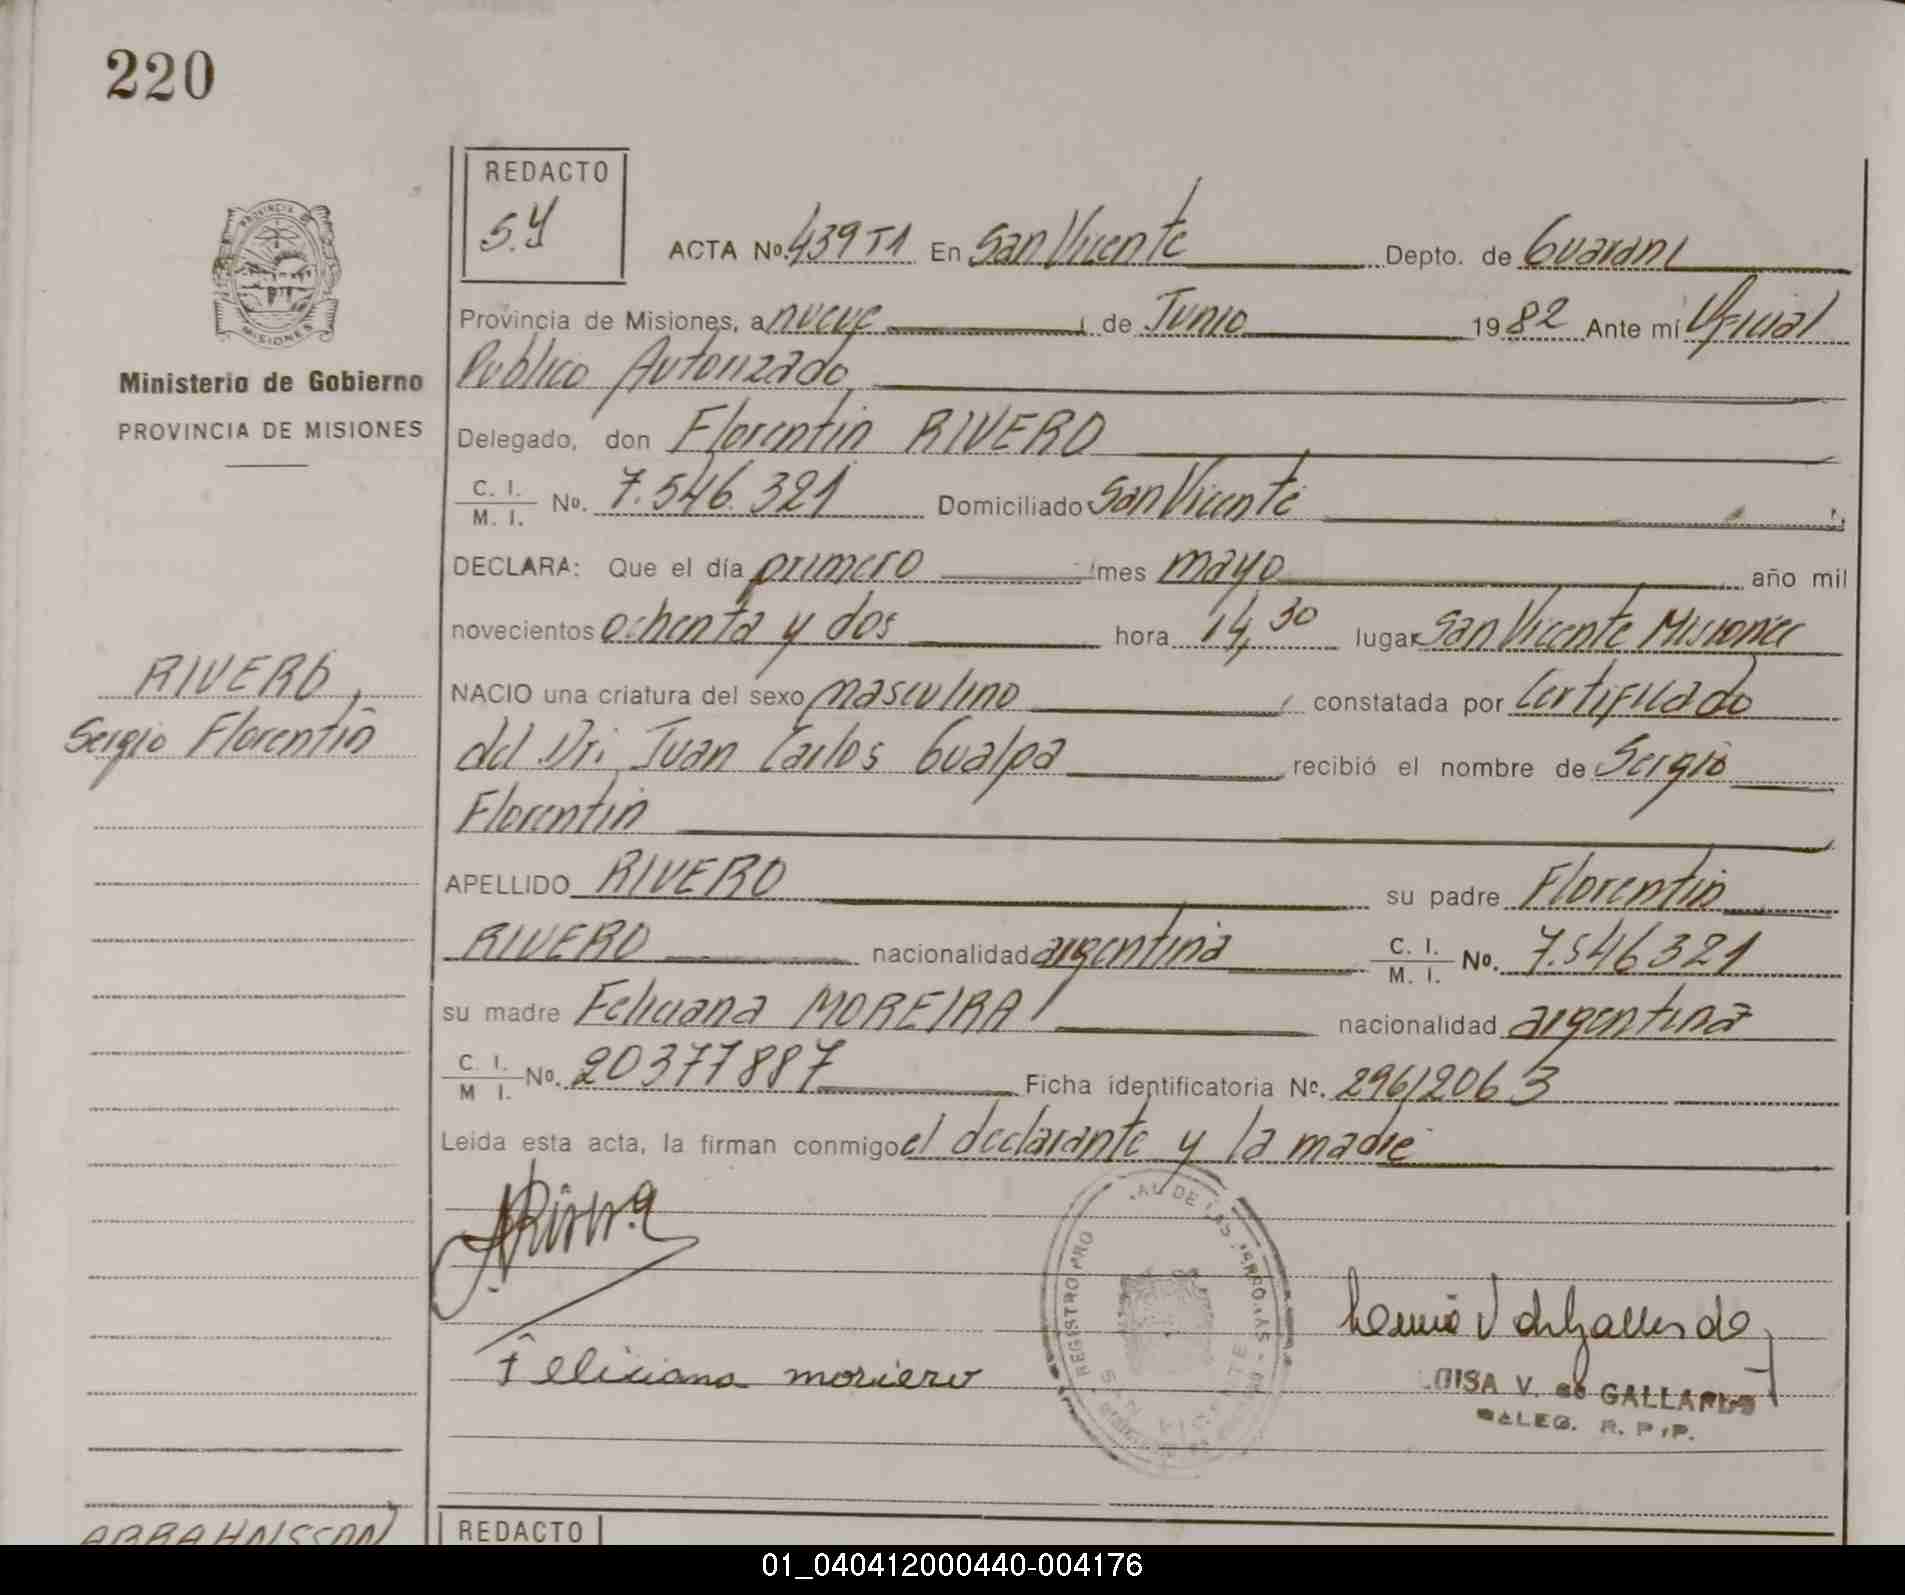 220
REDACTO
S.Y
ACTA No. 439 T1 En San Vicente Depto. de Guarani
Provincia de Misiones, a nueve de Junio 1982 Ante mí Oficial
Publico Autorizado
Delegado, don Florentin RIVERO
C. I. / M. I. No. 7.546.321 Domiciliado San Vicente
DECLARA: Que el día primero mes mayo año mil
novecientos ochenta y dos hora 14,30 lugar San Vicente Misiones
NACIO una criatura del sexo masculino, constatada por Certificado
del Dr. Juan Carlos Gualpa recibió el nombre de Sergio
Florentin
APELLIDO RIVERO su padre Florentin
RIVERO nacionalidad argentina C. I. / M. I. No. 7.546321
su madre Feliciana MOREIRA nacionalidad argentina
C. I. / M I. No. 20377887 Ficha identificatoria No. 296/2063
Leida esta acta, la firman conmigo el declarante y la madre
Feliciana moriero
REGISTRO PRO AL DE LAS
V. de GALLARDO
R. P. P.
PROVINCIA
MISIONES
Ministerio de Gobierno
PROVINCIA DE MISIONES
RIVERO,
Sergio Florentin
REDACTO
01_040412000440-004176